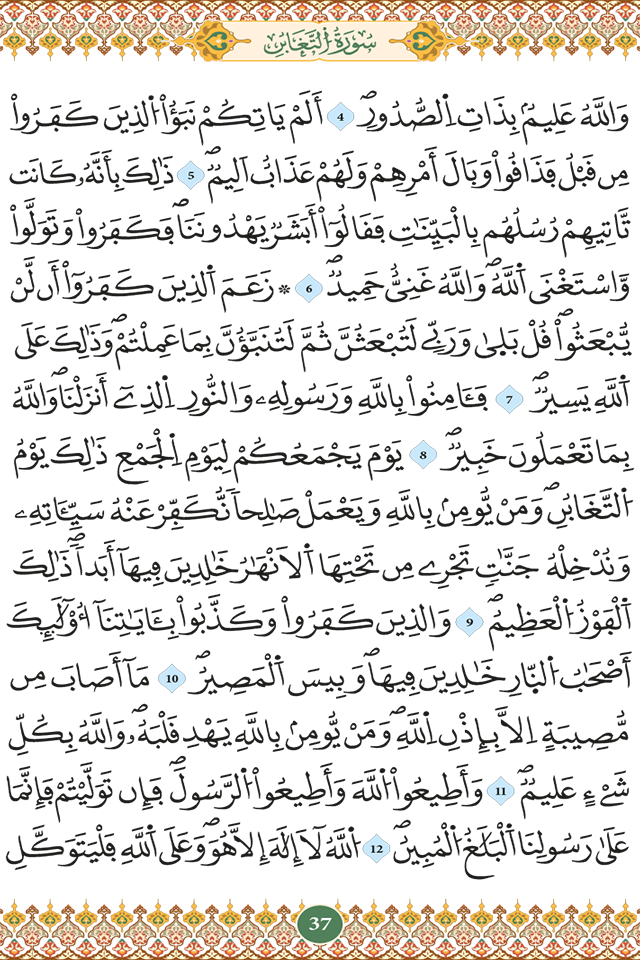 سُورَةُ التَّغَابُنِ
وَاللَّهُ عَلِيمُۢ بِذَاتِ اِ۬لصُّدُورِۖ 4 أَلَمْ يَاتِكُمْ نَبَؤُاْ اُ۬لذِينَ كَفَرُواْ
مِن قَبْلُ فَذَاقُواْ وَبَالَ أَمْرِهِمْ وَلَهُمْ عَذَابٌ اَلِيمٞۖ 5 ذَٰلِكَ بِأَنَّهُۥ كَانَت
تَّاتِيهِمْ رُسُلُهُم بِالْبَيِّنَٰتِ فَقَالُوٓاْ أَبَشَرٞ يَهْدُونَنَاۖ فَكَفَرُواْ وَتَوَلَّواْ
وَّاسْتَغْنَى اَ۬للَّهُۖ وَاللَّهُ غَنِيٌّ حَمِيدٞۖ 6 ۞ زَعَمَ اَ۬لذِينَ كَفَرُوٓاْ أَن لَّنْ
يُّبْعَثُواْۖ قُلْ بَل۪يٰ وَرَبِّے لَتُبْعَثُنَّ ثُمَّ لَتُنَبَّؤُنَّ بِمَا عَمِلْتُمْۖ وَذَٰلِكَ عَلَى
اَ۬للَّهِ يَسِيرٞۖ 7 فَـَٔامِنُواْ بِاللَّهِ وَرَسُولِهِۦ وَالنُّورِ اِ۬لذِےٓ أَنزَلْنَاۖ وَاللَّهُ
بِمَا تَعْمَلُونَ خَبِيرٞۖ 8 يَوْمَ يَجْمَعُكُمْ لِيَوْمِ اِ۬لْجَمْعِ ذَٰلِكَ يَوْمُ
اُ۬لتَّغَابُنِۖ وَمَنْ يُّومِنۢ بِاللَّهِ وَيَعْمَلْ صَٰلِحاٗ نُّكَفِّرْ عَنْهُ سَيِّـَٔاتِهِۦ
وَنُدْخِلْهُ جَنَّٰتٖ تَجْرِے مِن تَحْتِهَا اَ۬لَانْهَٰرُ خَٰلِدِينَ فِيهَآ أَبَداٗۖ ذَٰلِكَ
اَ۬لْفَوْزُ اُ۬لْعَظِيمُۖ 9 وَالذِينَ كَفَرُواْ وَكَذَّبُواْ بِـَٔايَٰتِنَآ أُوْلَٰٓئِكَ
أَصْحَٰبُ اُ۬لنّ۪ارِ خَٰلِدِينَ فِيهَاۖ وَبِيسَ اَ۬لْمَصِيرُۖ 10 مَآ أَصَابَ مِن
مُّصِيبَةٍ اِلَّا بِإِذْنِ اِ۬للَّهِۖ وَمَنْ يُّومِنۢ بِاللَّهِ يَهْدِ قَلْبَهُۥۖ وَاللَّهُ بِكُلِّ
شَےْءٍ عَلِيمٞۖ 11 وَأَطِيعُواْ اُ۬للَّهَ وَأَطِيعُواْ اُ۬لرَّسُولَۖ فَإِن تَوَلَّيْتُمْ فَإِنَّمَا
عَلَىٰ رَسُولِنَا اَ۬لْبَلَٰغُ اُ۬لْمُبِينُۖ 12 اُ۬للَّهُ لَآ إِلَٰهَ إِلَّا هُوَۖ وَعَلَى اَ۬للَّهِ فَلْيَتَوَكَّلِ
37